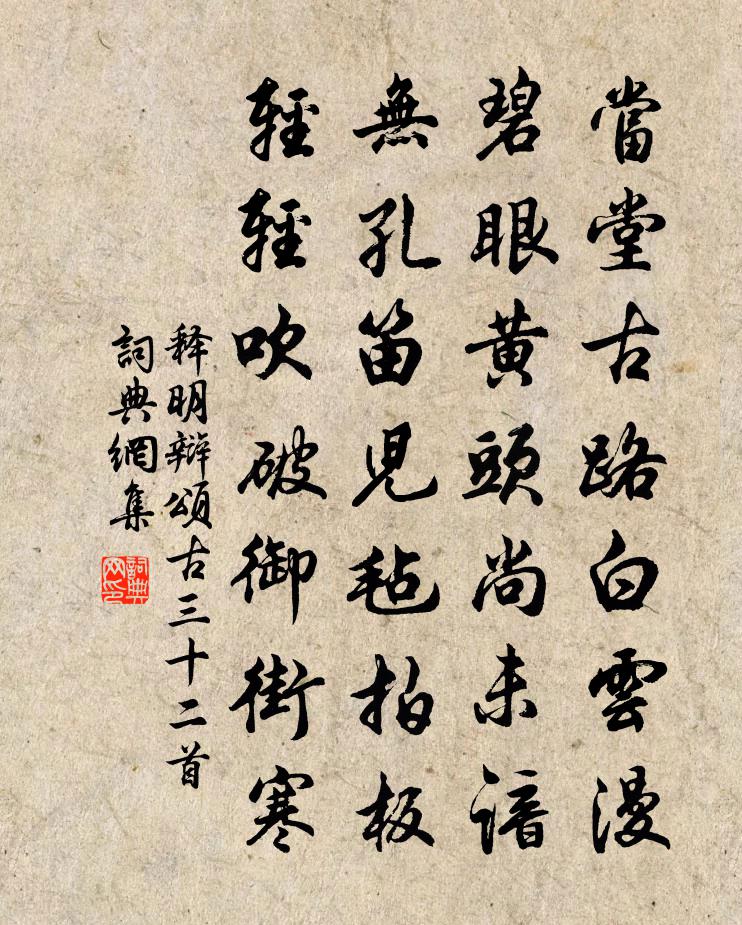 當堂古路白雲漫
碧眼黄頭尚未諳
無孔笛児毡拍板
輕輕吹破御街寒
释明辯頌古三十二首
詞典網集
詞典网印